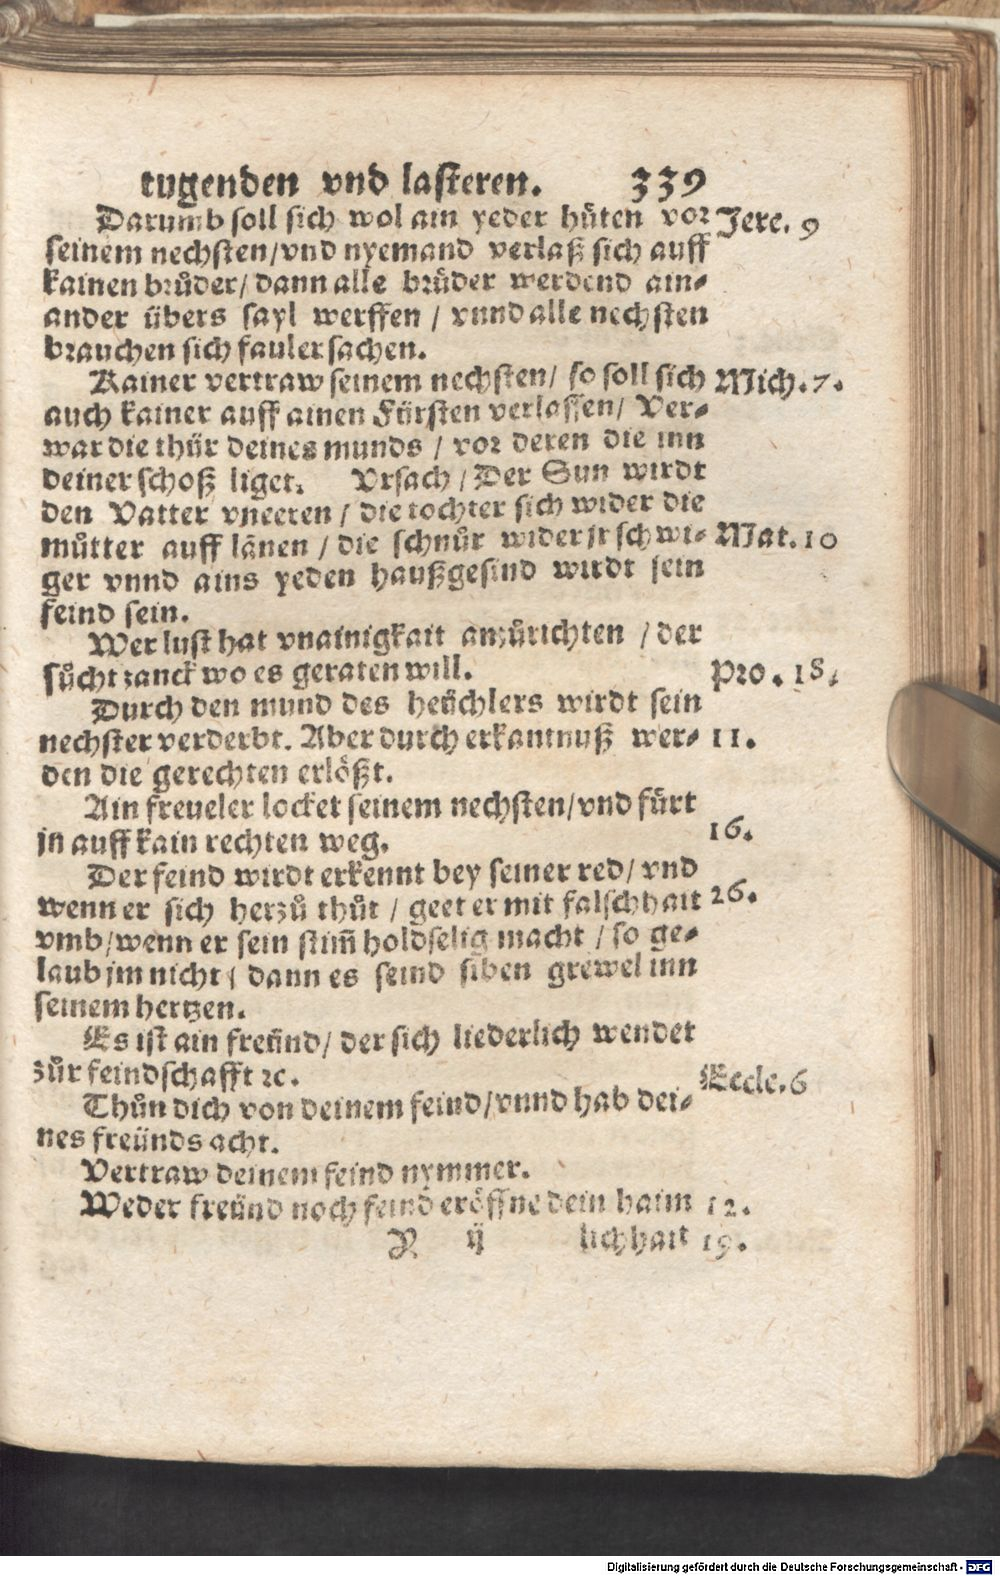 tugenden vnd lasteren. 339
Darumb soll sich wol ain yeder hüten vor Jere. 9
seinem nechsten/vnd nyemand verlaß sich auff
kainen brůder/ dann alle brüder werdend ain-
ander übers sayl werffen / vnnd alle nechsten
brauchen sich fauler sachen.
Kainer vertraw seinem nechsten/ so soll sich Mich. 7.
auch kainer auff ainen Fürsten verlassen/ Ver-
war die thür deines munds / vor deren die inn
deiner schoß liget. Vrsach / Der Sun wirdt
den Vatter vneeren / die tochter sich wider die
můtter auff länen / die schnůr wider jr schwi- Mat. 10
ger vnnd ains yeden haußgesind wirdt sein
feind sein.
Wer lust hat vnainigkait anzůrichten / der
sůcht zanck wo es geraten will. Pro. 18.
Durch den mund des heüchlers wirdt sein
nechster verderbt. Aber durch erkantnuß wer- 11.
den die gerechten erlößt.
Ain freueler locket seinem nechsten/vnd fürt
jn auff kain rechten weg. 16.
Der feind wirdt erkennt bey seiner red/ vnd
wenn er sich herzů thůt / geet er mit falschhait 26.
vmb/wenn er sein stim̃ holdselig macht / so ge-
laub jm nicht / dann es seind siben grewel inn
seinem hertzen.
Es ist ain freünd/ der sich liederlich wendet
zůr feindschafft ꝛc. Eccle. 6
Thůn dich von deinem feind/vnnd hab dei-
nes freünds acht.
Vertraw deinem feind nymmer.
Weder freünd noch feind eröffne dein haim 12.
Y ij lichhait 19.
Digitalisierung gefördert durch die Deutsche Forschungsgemeinschaft - DFG